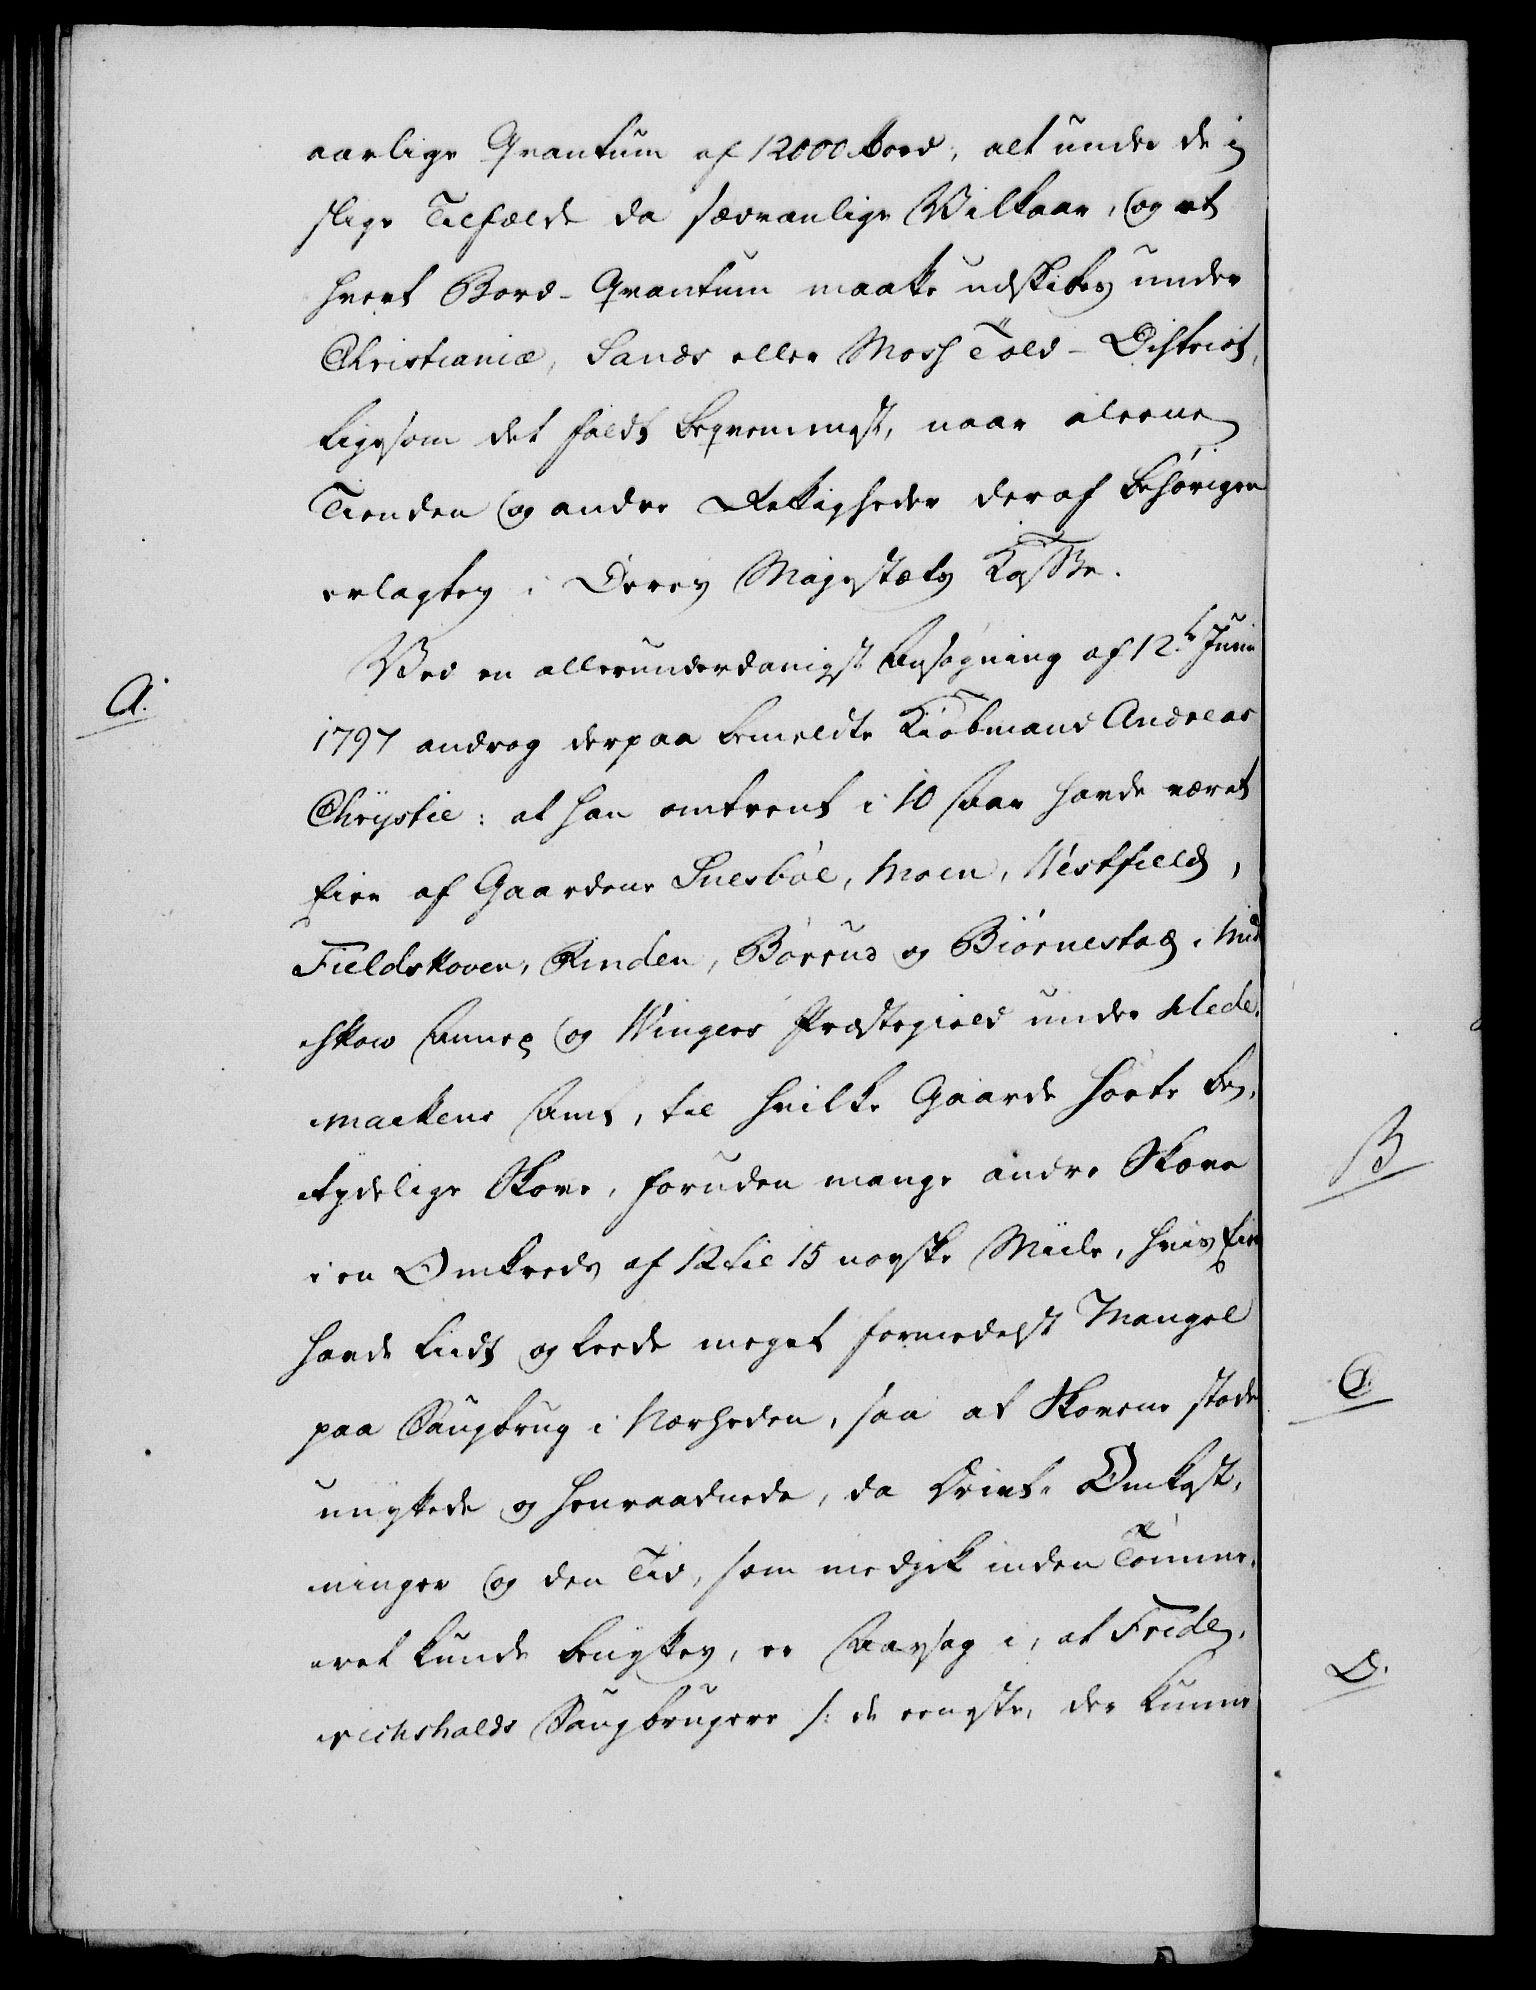 aarlige Qvantum af 12000 Bord, alt under de i
slige Tilfælde da sædvanlige Vilkaar, og at
hvert Bord-Qvantum maatte udskibes under
Christianiæ, Sands eller Moss Told-District,
ligesom det faldt beqvemmest, naar aleene
Tienden og andre Rettigheder deraf behørigen
erlagtes i Deres Majestæts Kasse.
A.
Ved en allerunderdanigst Ansøgning af 12te Junii
1797 androg derpaa bemeldte Kiøbmand Andreas
Chrystie: at han omtrent i 10 Aar havde været
Eier af Gaardene Snesbøl, Moen, Westfield,
Fieldskoven, Rinden, Børrud og Biørnestad i Mid
skow Annex og Wingers Præstegield under Hede-
markens Amt, til hvilke Gaarde hørte be-
tydelige Skove, foruden mange andre Skove
i en Omkreds af 12 til 15 norske Miile, hvis Eier
havde liidt og leede meget formedelst Mangel
paa Saugbrug i Nærheden, saa at Skovene stode
unyttede og henraadnede, da Drivt-Omkost-
ninger og den Tid, som medgik inden Tømme-
ret kunde benyttes, er Aarsag i, at Fride-
richshalds Saugbrugere /: de eeneste, der kunne
B
C.
D.